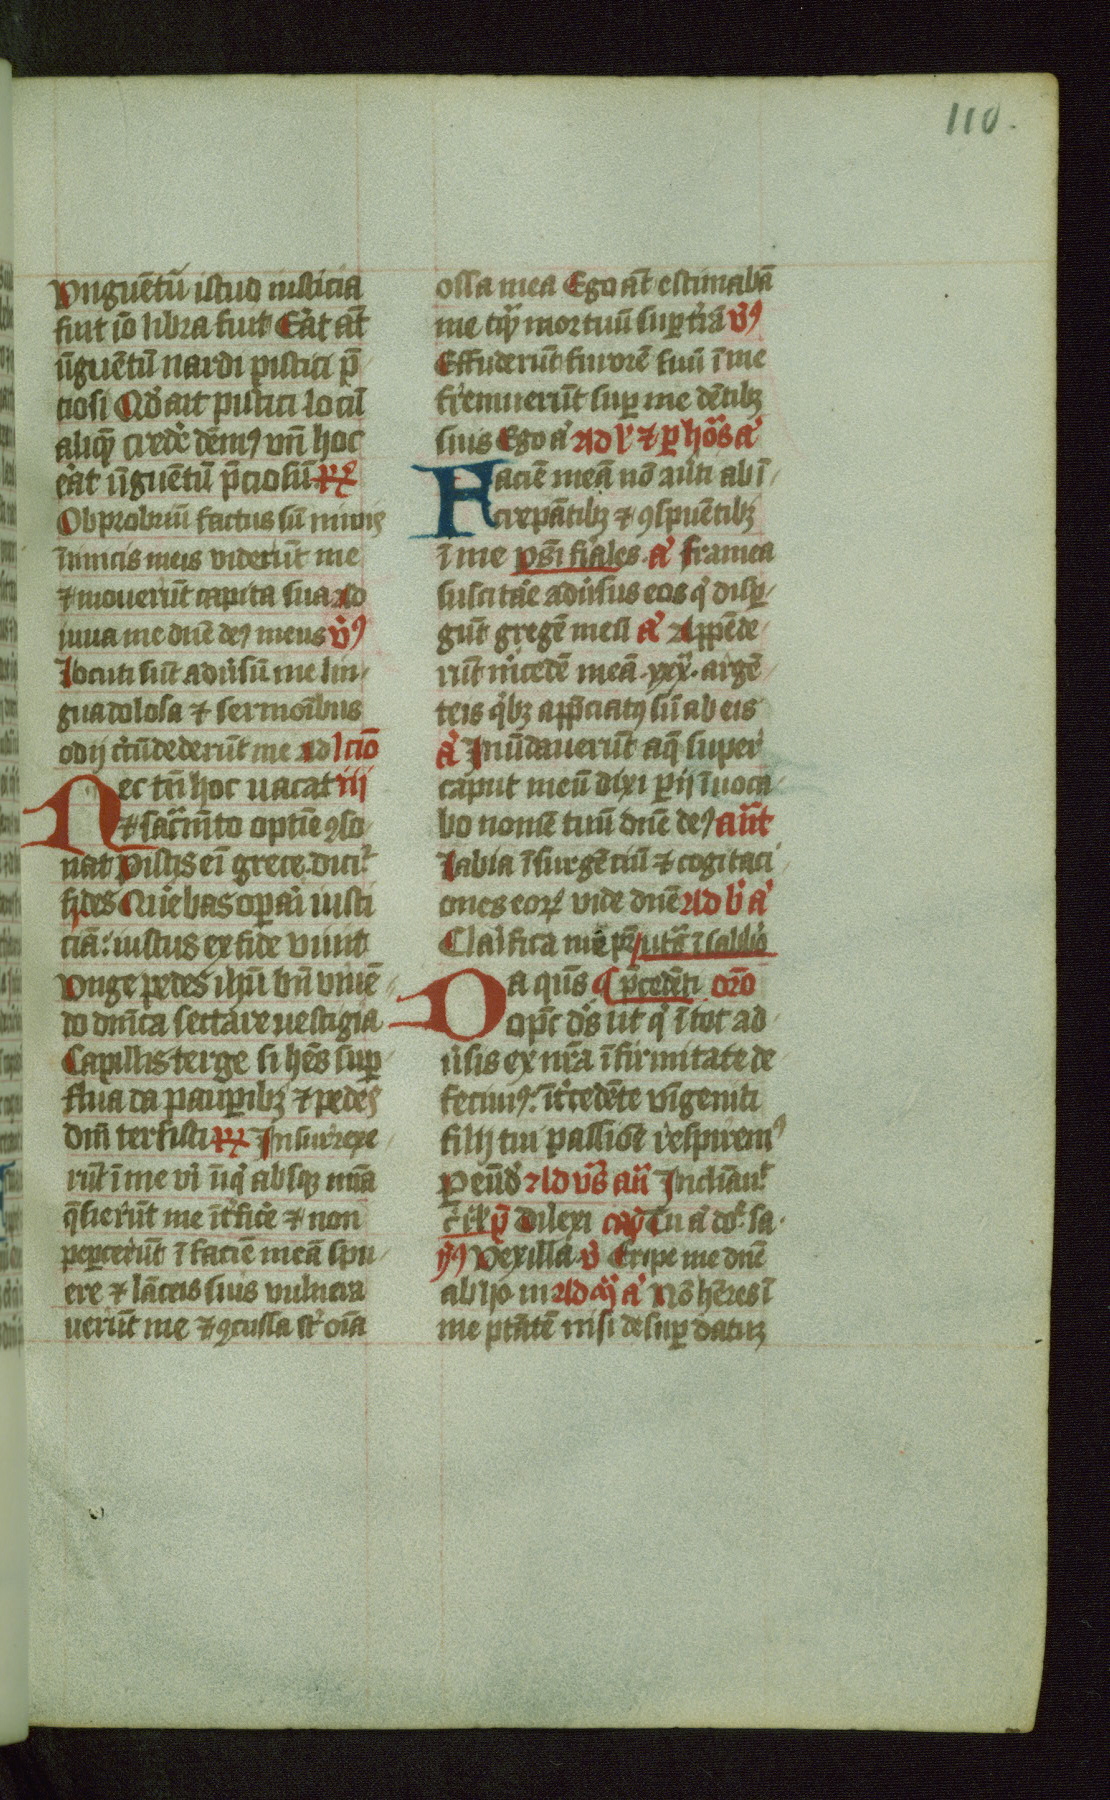 110.
Vnguētū istud iusticia
fuit iō libra fuit Erāt at̄
ūguētū nardi pistici p̄
ciosi Qd' ait pistici locū
aliq̄ credē dem9 vn̄ hoc
erāt ūguētū p̄ciosū R
Obprobriū factus sū nimis
īimicis meis viderūt me
⁊ mouerūt capita sua ad
iuua me dn̄e de9 meus v̄9
Locuti sūt adūsū me lin
gua dolosa ⁊ sermoībus
odij circūdederūt me ad lcio
Nec tn̄ hoc uacat iij
⁊ sacrm̄to optīe 9so
nat Pistis eī grece dicit'
fides Querebas opari iusti
ciā: iustus ex fide viuit
Vnge pedes ih̄u bn̄ viuē
do dn̄ica sectare uestigia
Capillis terge si hēs sup
flua da paupibꝫ ⁊ pedes
dn̄i tersisti R Insurrexe
rūt ī me viri īiq' absqꝫ mīa
q̄sierūt me īt'fice' ⁊ non
pepercerūt ī faciē meā spu
ere ⁊ lāceis suis vulnera
uerūt me ⁊ 9cussa st' oīa
ossa mea Ego at̄ estimabā
me tq̄ mortuū sup t'rā v̄9
Effuderūt furorē suū ī me
fremuerūt sup me dētibꝫ
suis Ego a' Ad l' ⁊ p hōs a'
Faciē meā nō auti ab ī
crepātibꝫ ⁊ 9spuētibꝫ
ī me ps̄i fiales. a' Framea
suscitare adūsus eos q' disp
gūt gregē meū a' Appēde
rūt m'cedē meā .xxx. argē
teis q'bꝫ app̄ciat9 sū ab eis
a' Inūdauerūt aq̄ super
caput meū dixi perij īuoca
bo nomē tuū dn̄e de9 an̄t
Labia īsurgētiū ⁊ cogitaci
ones eoꝝ vide dn̄e Ad b' a'
Clarifica me pr̄ utā ī sabb'o
Da qūs q p̄cedēti oro
op̄c ds' ut q' ī tot ad
ūsis ex nr̄a īfirmitate de
fecim9: ītcedēte vnigeniti
filij tui passiōe respirem9
P eūd' Ad vs̄ an̄ Inclinan̄t
Dilexi Tu a' do' sa
v̄9 Vexilla v̄ Eripe me dn̄e
ab ho m Ad a' Nō hēres ī
me ptātē nisi desup datū